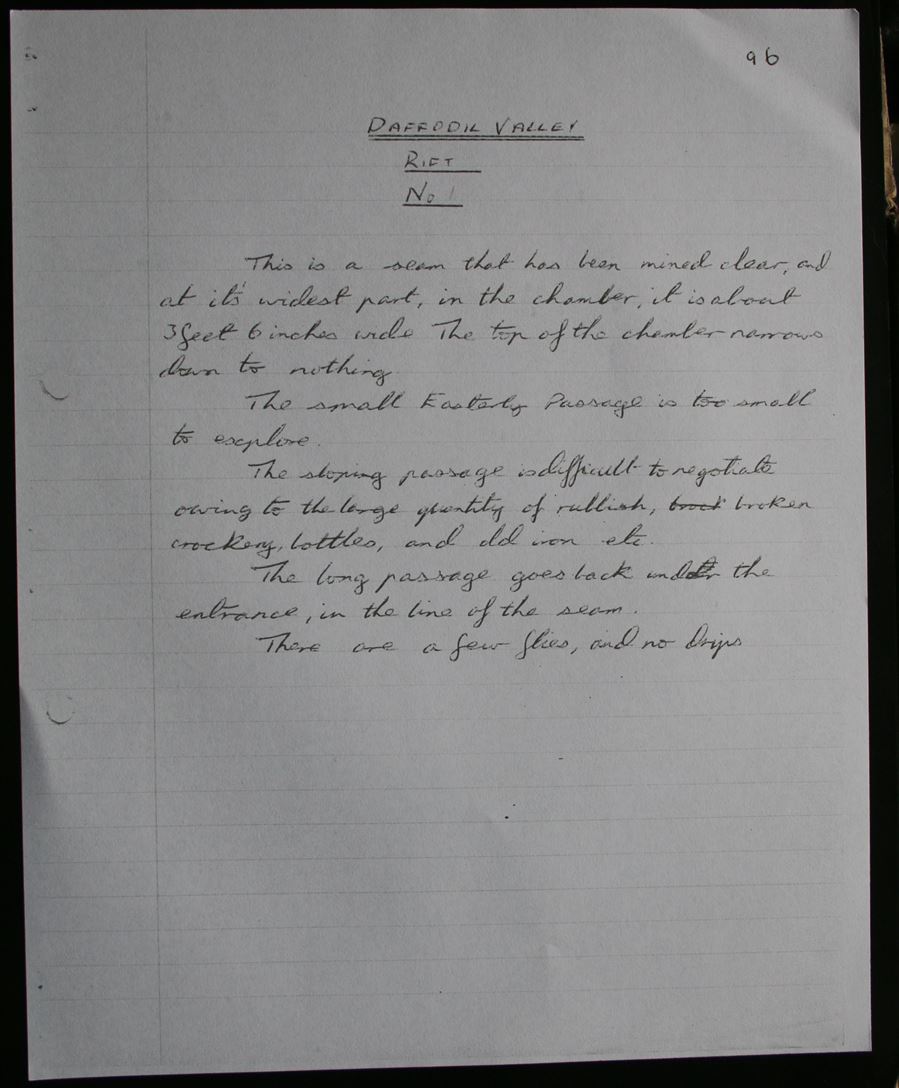 96
DAFFODIL VALLEY
RIFT
No 1
This is a seam that has been mined clear, and
at it's widest part, in the chamber, it is about
3 feet 6 inches wide The top of the chamber narrows
down to nothing.
The small Easterly Passage is too small
to explore.
The sloping passage is difficult to negotiate
owing to the large quantity of rubbish, brock broken
crockery, bottles, and old iron etc.
The long passage goes back under the
entrance, in the line of the seam.
There are a few flies, and no drips